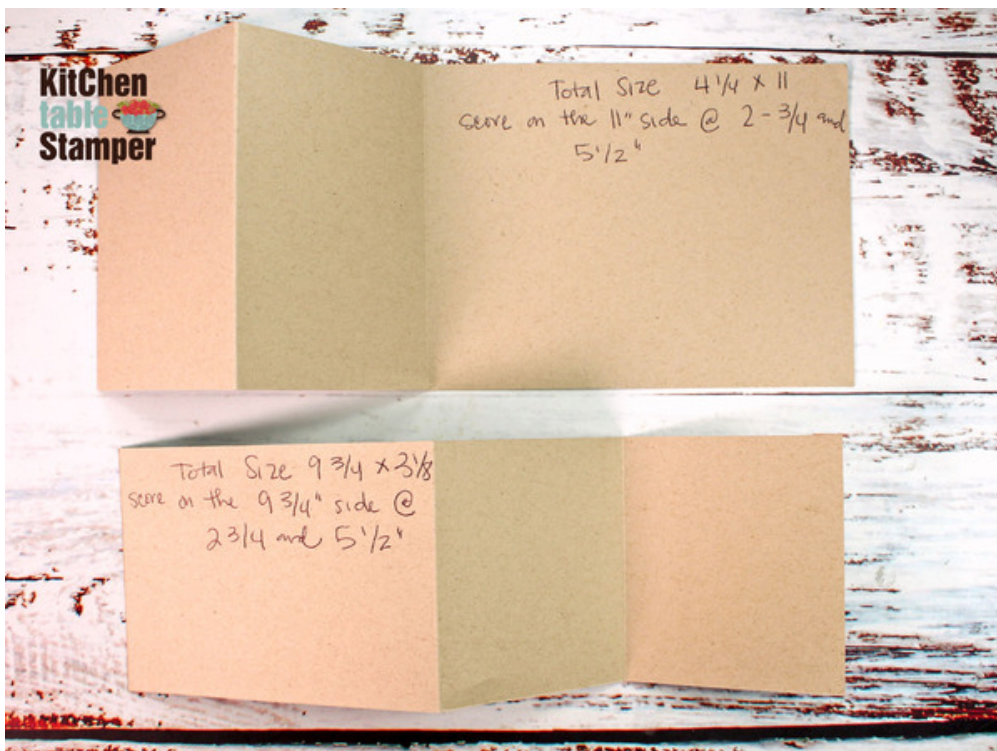 KitChen
table
Stamper
Total Size 4 1/4 x 11
score on the 11" side @ 2-3/4 and
5 1/2"
Total Size 9 3/4 x 3 1/8
score on the 9 3/4" side @
2 3/4 and 5 1/2"